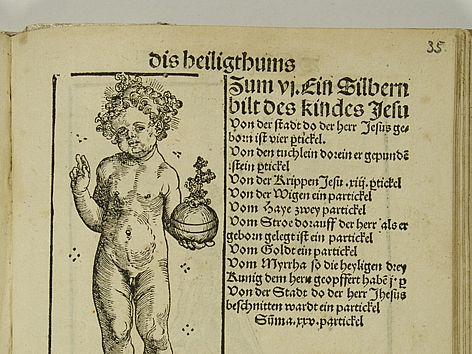 35
dis heiligthums
Zum vj. Ein Silbern
bilt des kindes Jesu
Von der stadt do der herr Jesus ge-
born ist vier ꝑtickel.
Von den tuchlein dorein er gepundē
ist ein ꝑtickel
Von der Krippen Jesu .xiij. ꝑtickel
Von der Wigen ein partickel
Vom Haye zwey partickel
Vom Stroe dorauff der herr als er
geborn gelegt ist ein partickel
Vom Goldt ein partickel
Vom Myrrha so die heyligen drey
Kunig dem herrē geopffert habē j. ꝑ
Von der Stadt do der herr Jhesus
beschnitten wardt ein partickel
Sūma .xxv. partickel